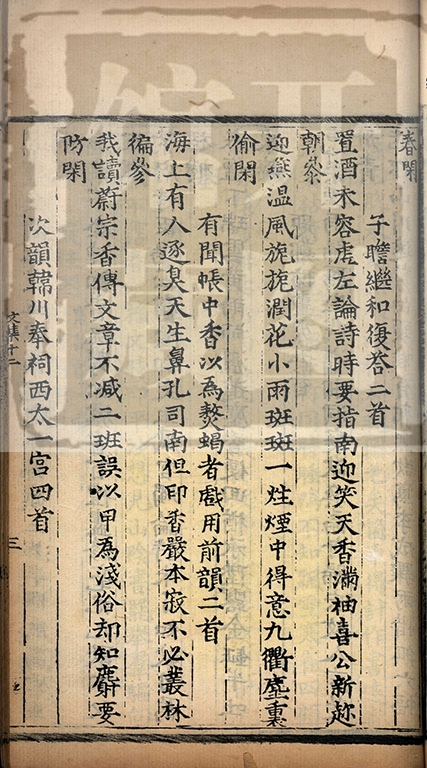 春閑
子瞻繼和復荅二首
置酒未容虗左論詩時要指南迎笑天香滿袖喜公新趂
朝叅
迎燕温風旎旎潤花小雨班班一炷煙中得意九衢塵裏
偷閑
有聞帳中香以爲熬蝎者戲用前韻二首
海上有人逐臭天生鼻孔司南但印香嚴本寂不必叢林
徧參
我讀蔚宗香傳文章不减二班誤以甲爲淺俗却知麝要
防閑
次韻韓川奉祠西太一宫四首
文集十二
三